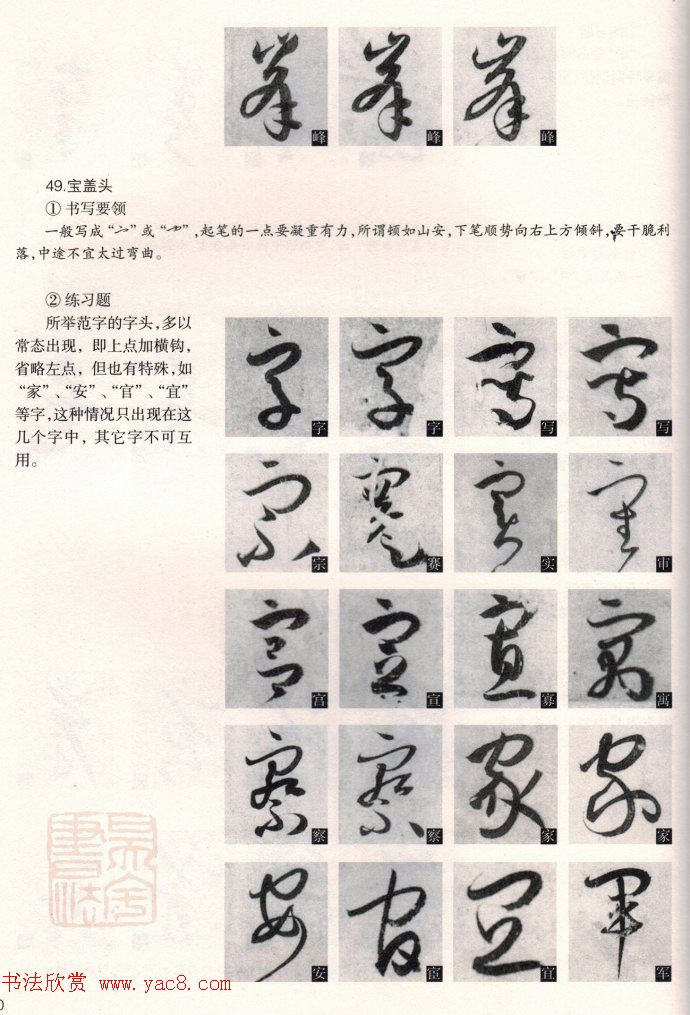 峰 峰 峰
49.宝盖头
① 书写要领
一般写成“”或“”,起笔的一点要凝重有力,所谓顿如山安,下笔顺势向右上方倾斜,要干脆利
落,中途不宜太过弯曲。
② 练习题
所举范字的字头,多以
常态出现，即上点加横钩,
省略左点，但也有特殊,如
“家”、“安”、“官”、“宜”
等字,这种情况只出现在这
几个字中，其它字不可互
用。
字 字 写 写
宗 赛 实 审
宫 宣 寡 寓
察 察 家 家
安 宦 宜 军
书法欣赏 www.yac8.com
0